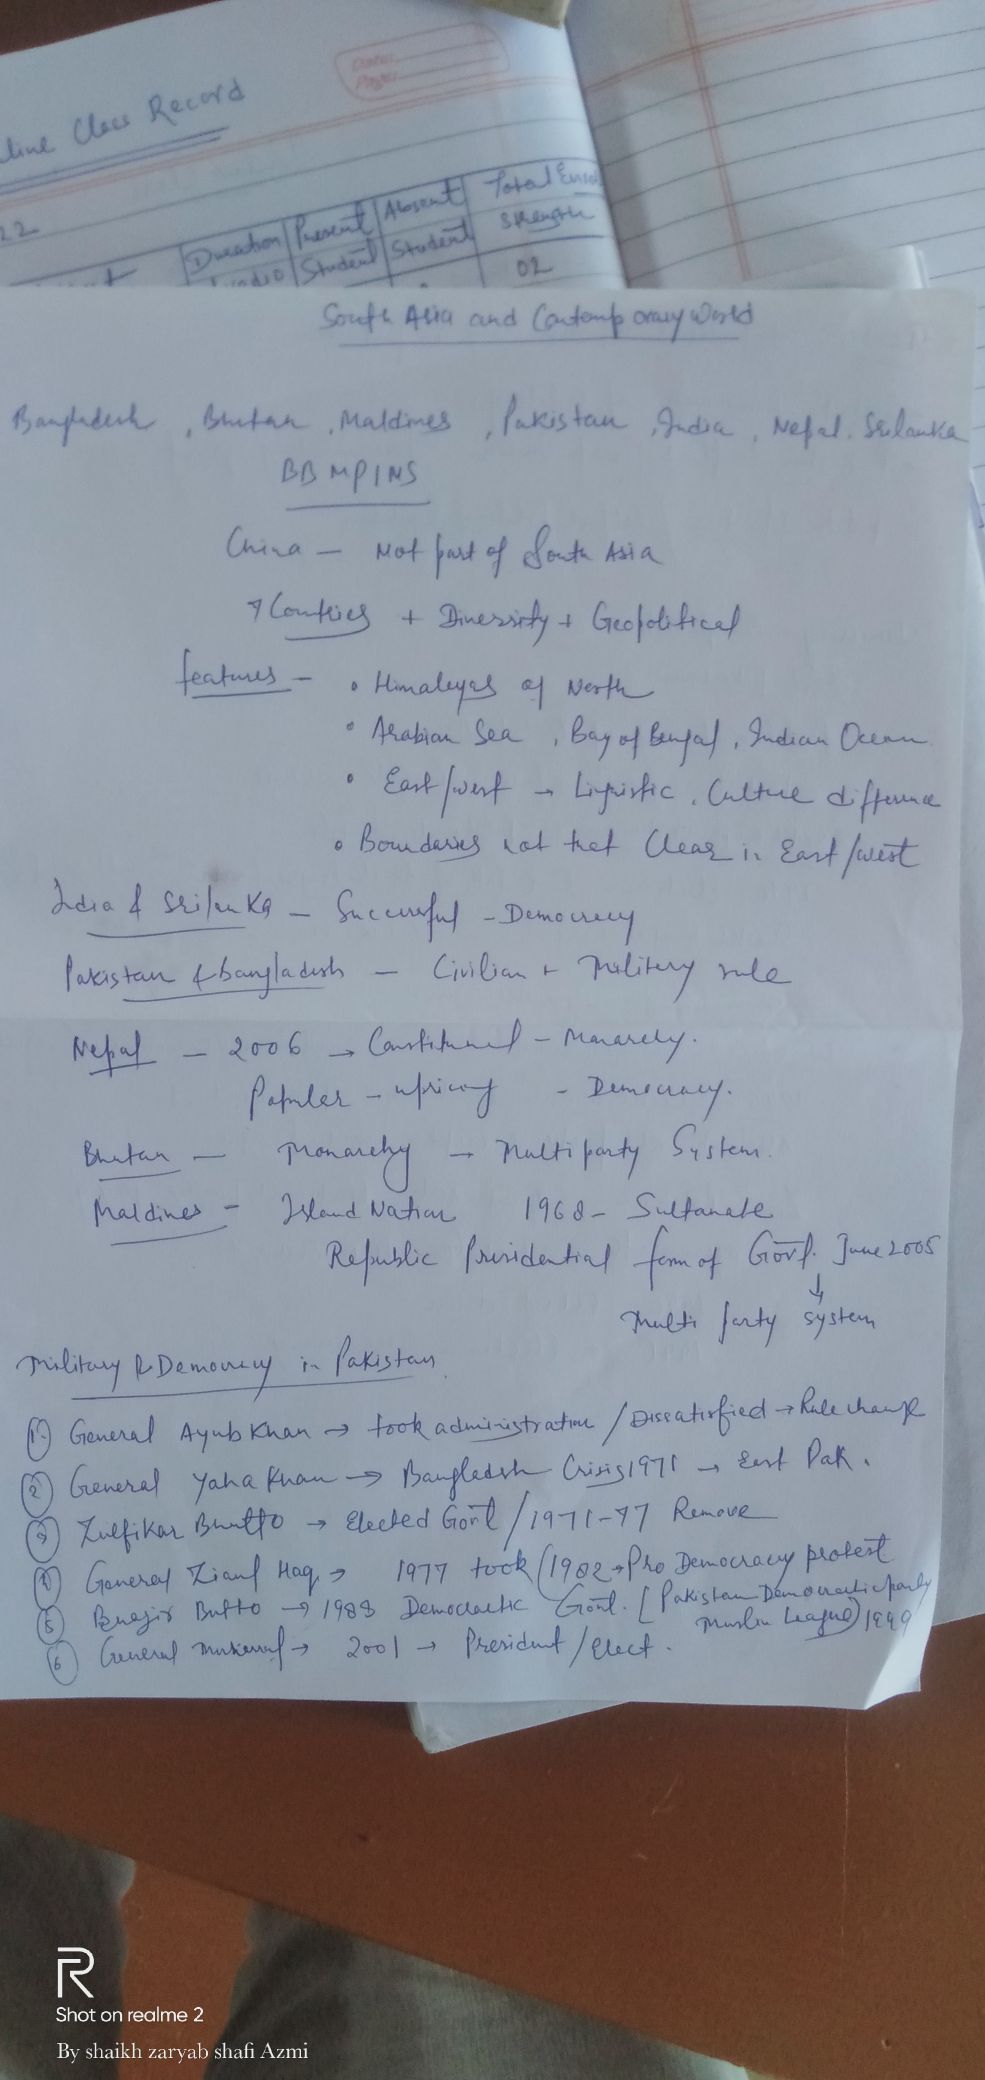 Online Class Record
Date:
Page:
22
Duration Present Absent Total
Student Student Strength
02
South Asia and Contemporary World
Bangladesh , Bhutan , Maldives , Pakistan , India , Nepal . Srilanka
BBMPINS
China — Not part of South Asia
7 Contries + Diversity + Geopolitical
features — • Himaleyas of North
• Arabian Sea , Bay of Bengal , Indian Ocean
• East/west → Liguistic , Culture difference
• Boundaries not that Clear in East/west
India & Srilanka — Successful - Democracy
Pakistan & bangladesh — Civilian + Military rule
Nepal — 2006 → Constitunal - Monarchy.
Populer - upricing - Democracy.
Bhutan — Monarchy → Multi party System.
Maldives — Island Nation 1968 - Sultanate
Republic Presidential form of Govt. June 2005
↓
Multi party system
Military & Democracy in Pakistan
① General Ayub Khan → took administration / Dissatisfied → Rule change
② General Yaha Khan → Bangladsh Crisis 1971 → East Pak.
③ Zulfikar Bhutto → Elected Govt / 1971-77 Remove
④ General Ziaul Haq → 1977 took (1982 → Pro Democracy protest
⑤ Benajir Butto → 1988 Democractic Govt. [Pakistan Democratic party
Muslim League) 1999
⑥ General Musharruf → 2001 → President / Elect.
R
Shot on realme 2
By shaikh zaryab shafi Azmi